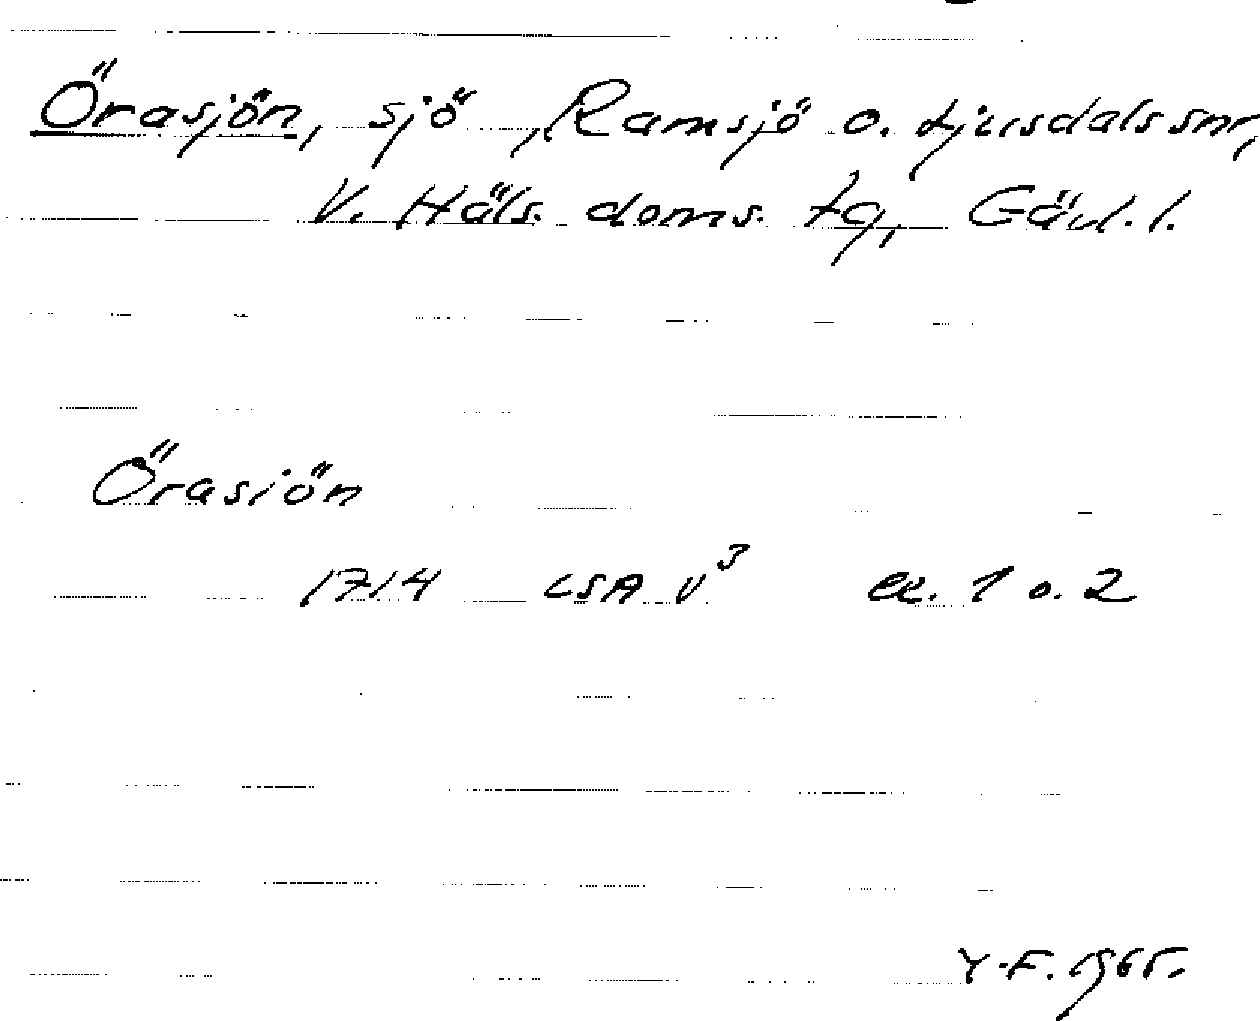 Örasjön, sjö, Ramsjö o. Ljusdals snr,
V. Häls. doms. tg, Gävl. l.
Örasiön
1714 LSA V³ ex. 1 o. 2
Y-F. 1965.